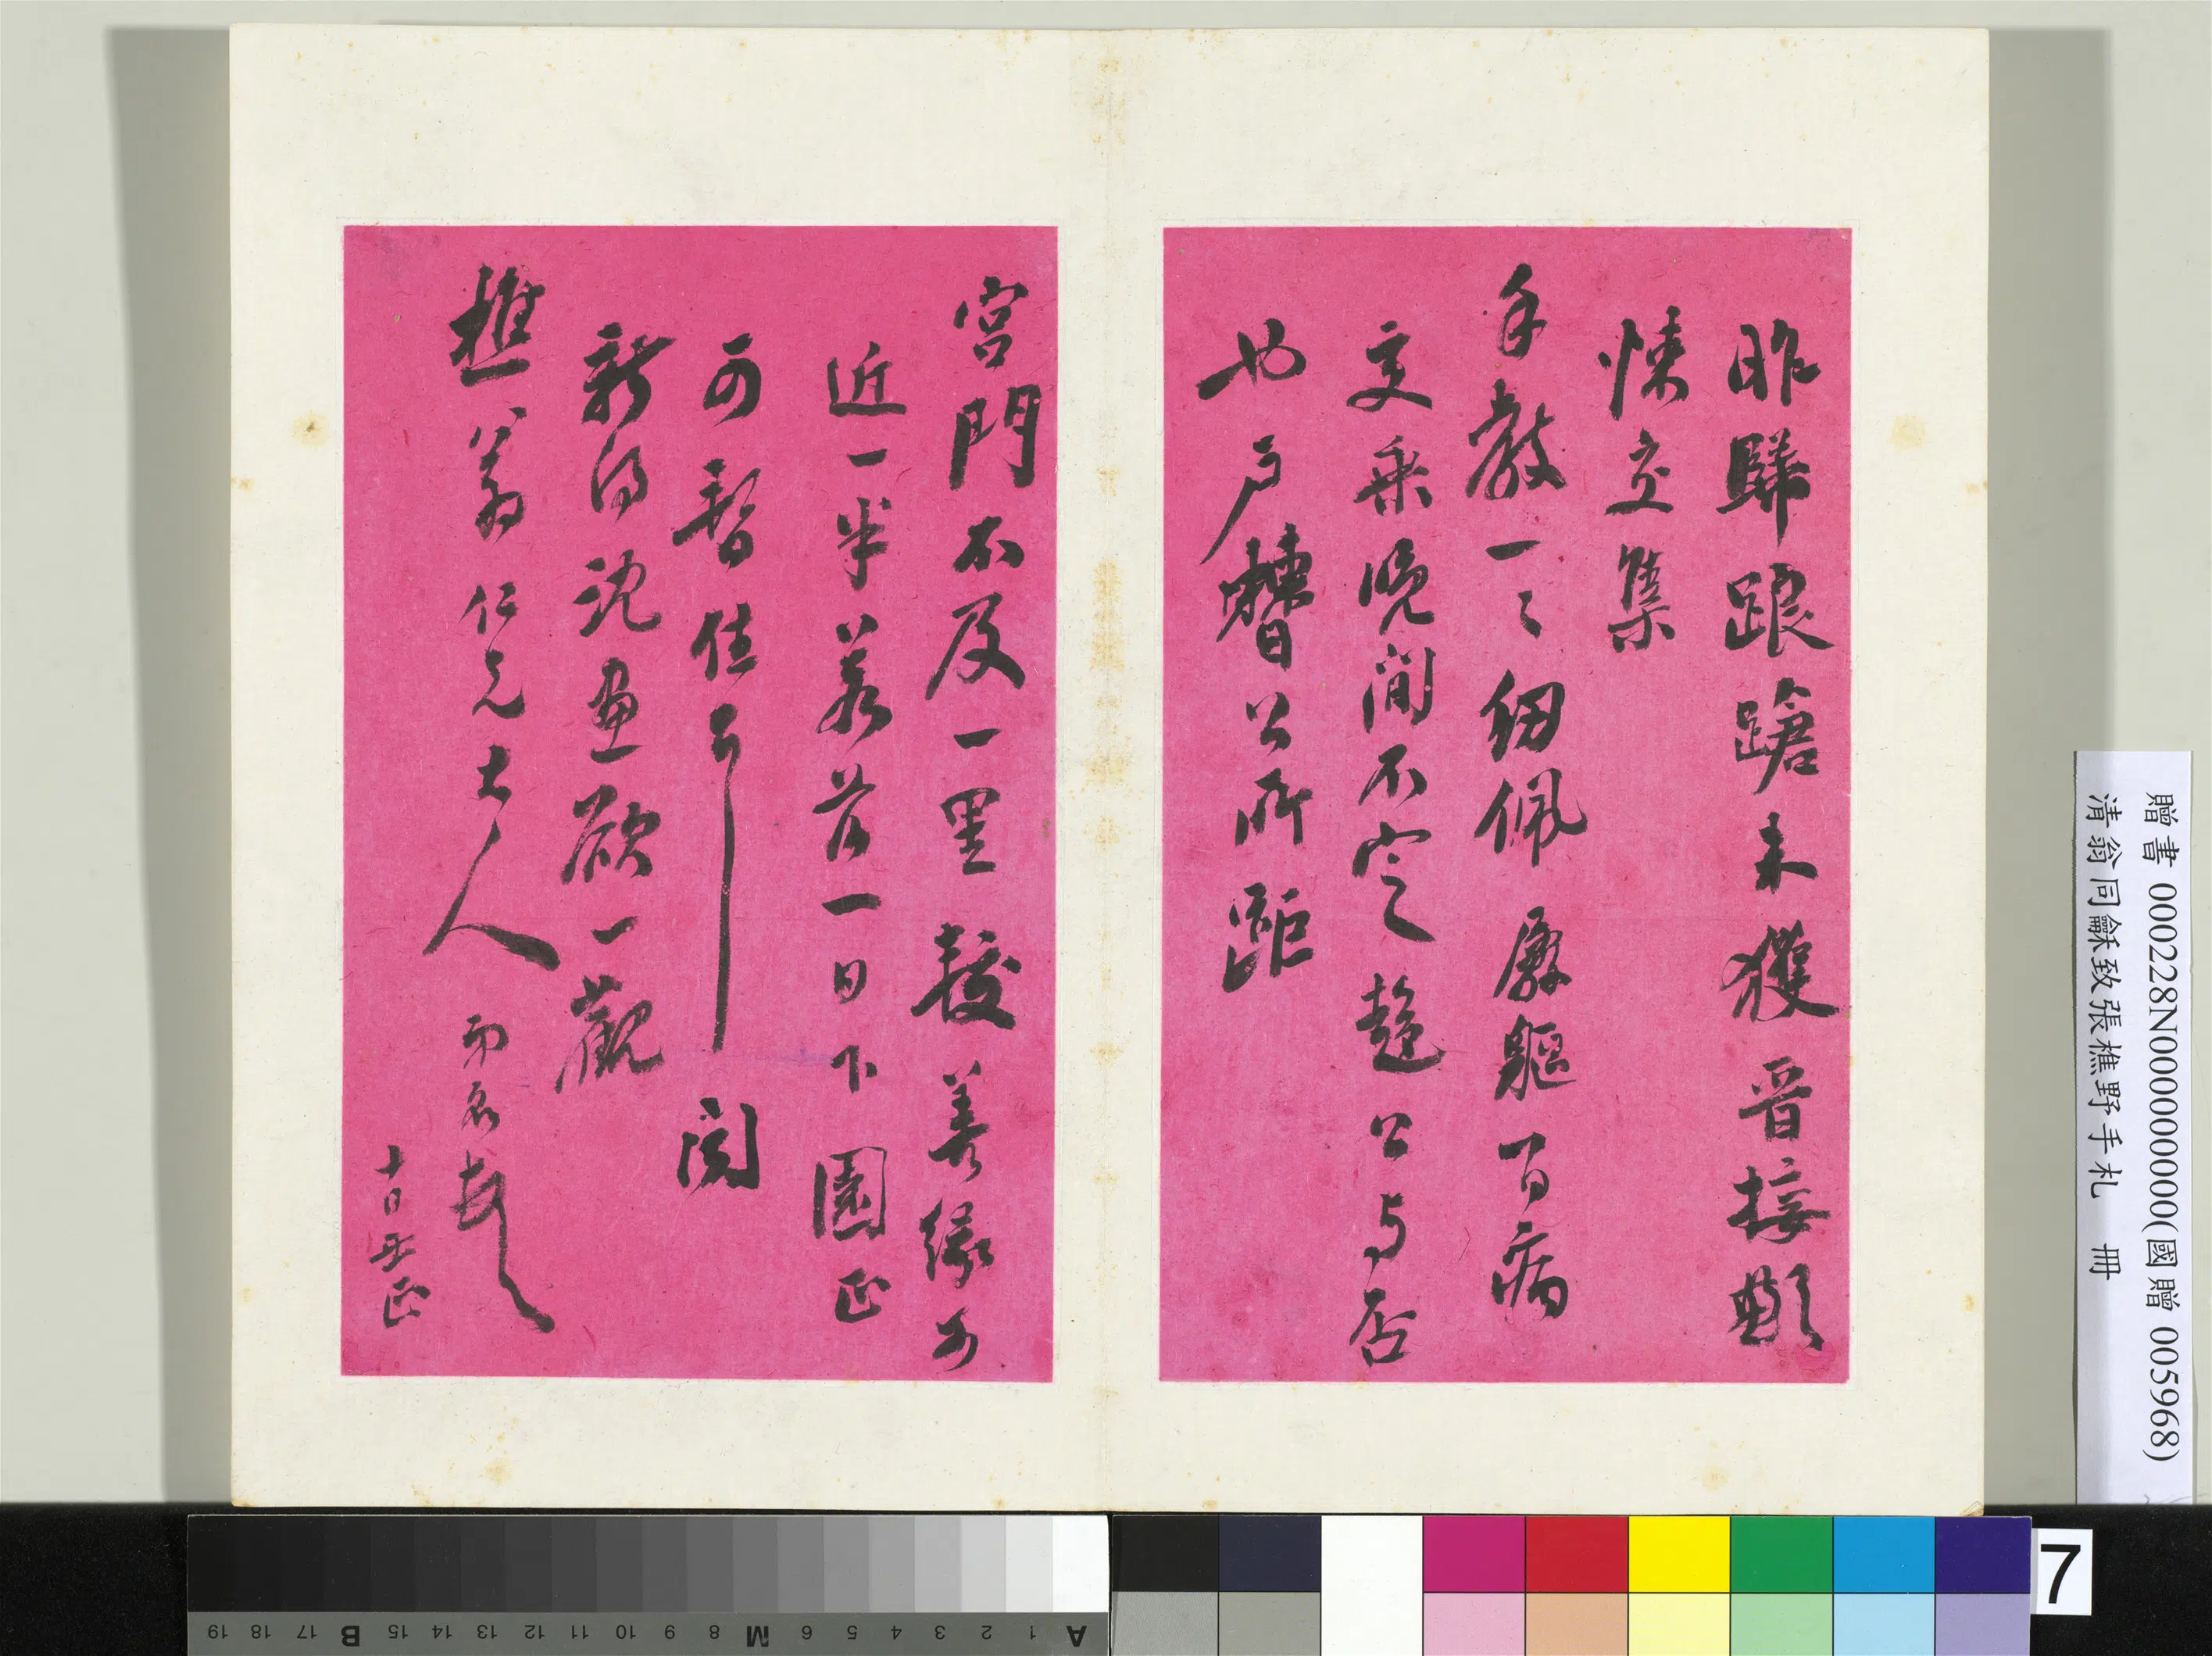 昨歸踉蹌未獲晉接慙
悚交集
手教一〻紉佩賤軀百病
交乘晚間不定趨公与否
也戶䎱公所距
宮門不及一里較善緣可
近一半若首一日下園正
可暫住耳聞
新得沈畫欲一觀
樵翁仁兄大人 兩名頓
十日丑正
贈書 000228N000000000(國贈 005968)
清翁同龢致張樵野手札 冊
7
A 1 2 3 4 5 6 M 8 9 10 11 12 13 14 15 B 17 18 19